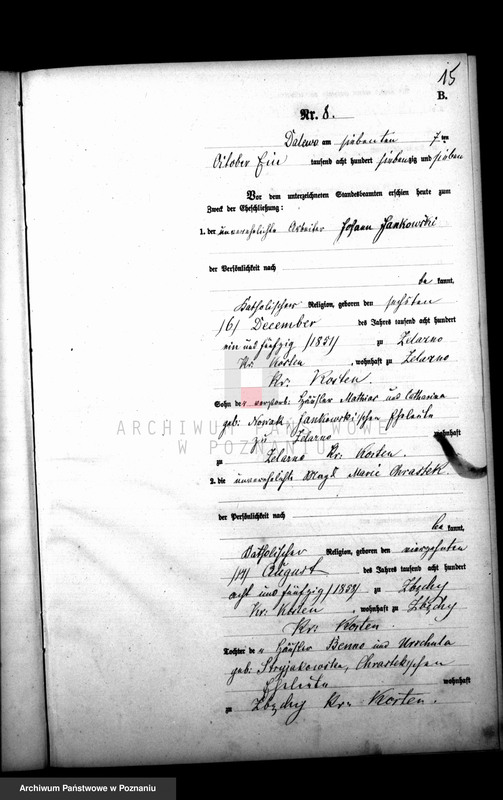 15
B.
Nr. 8.
Dalewo am siebenten 7ten
October Ein tausend acht hundert siebenzig und sieben
Vor dem unterzeichneten Standesbeamten erschien heute zum
Zweck der Eheschließung:
1. der unverehelichte Arbeiter Johann Jankowski
der Persönlichkeit nach
be kannt,
Katholischer Religion, geboren den sechsten
/6/ December des Jahres tausend acht hundert
ein und fünfzig /1851/ zu Zelazno
Kr: Kosten, wohnhaft zu Zelazno
Kr: Kosten.
Sohn der verstorb: Häusler Mathias und Catharina
geb: Nowak Jankowskischen Eheleute
zu Zelazno wohnhaft
zu Zelazno Kr: Kosten.
2. die unverehelichte Magd Marie Chrastek
der Persönlichkeit nach
be kannt,
Katholischer Religion, geboren den vierzehnten
/14/ August des Jahres tausend acht hundert
acht und fünfzig /1858/ zu Zbęchy
Kr: Kosten, wohnhaft zu Zbęchy
Kr: Kosten.
Tochter der Häusler Benno und Urschula
geb: Chrastekschen
Eheleute wohnhaft
zu Zbęchy Kr: Kosten.
ARCHIWUM PAŃSTWOWE
W POZNANIU
Archiwum Państwowe w Poznaniu